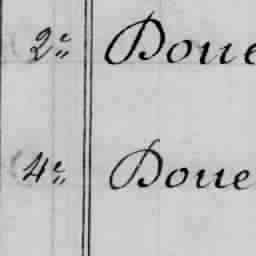 2e. Doue
4e. Doue